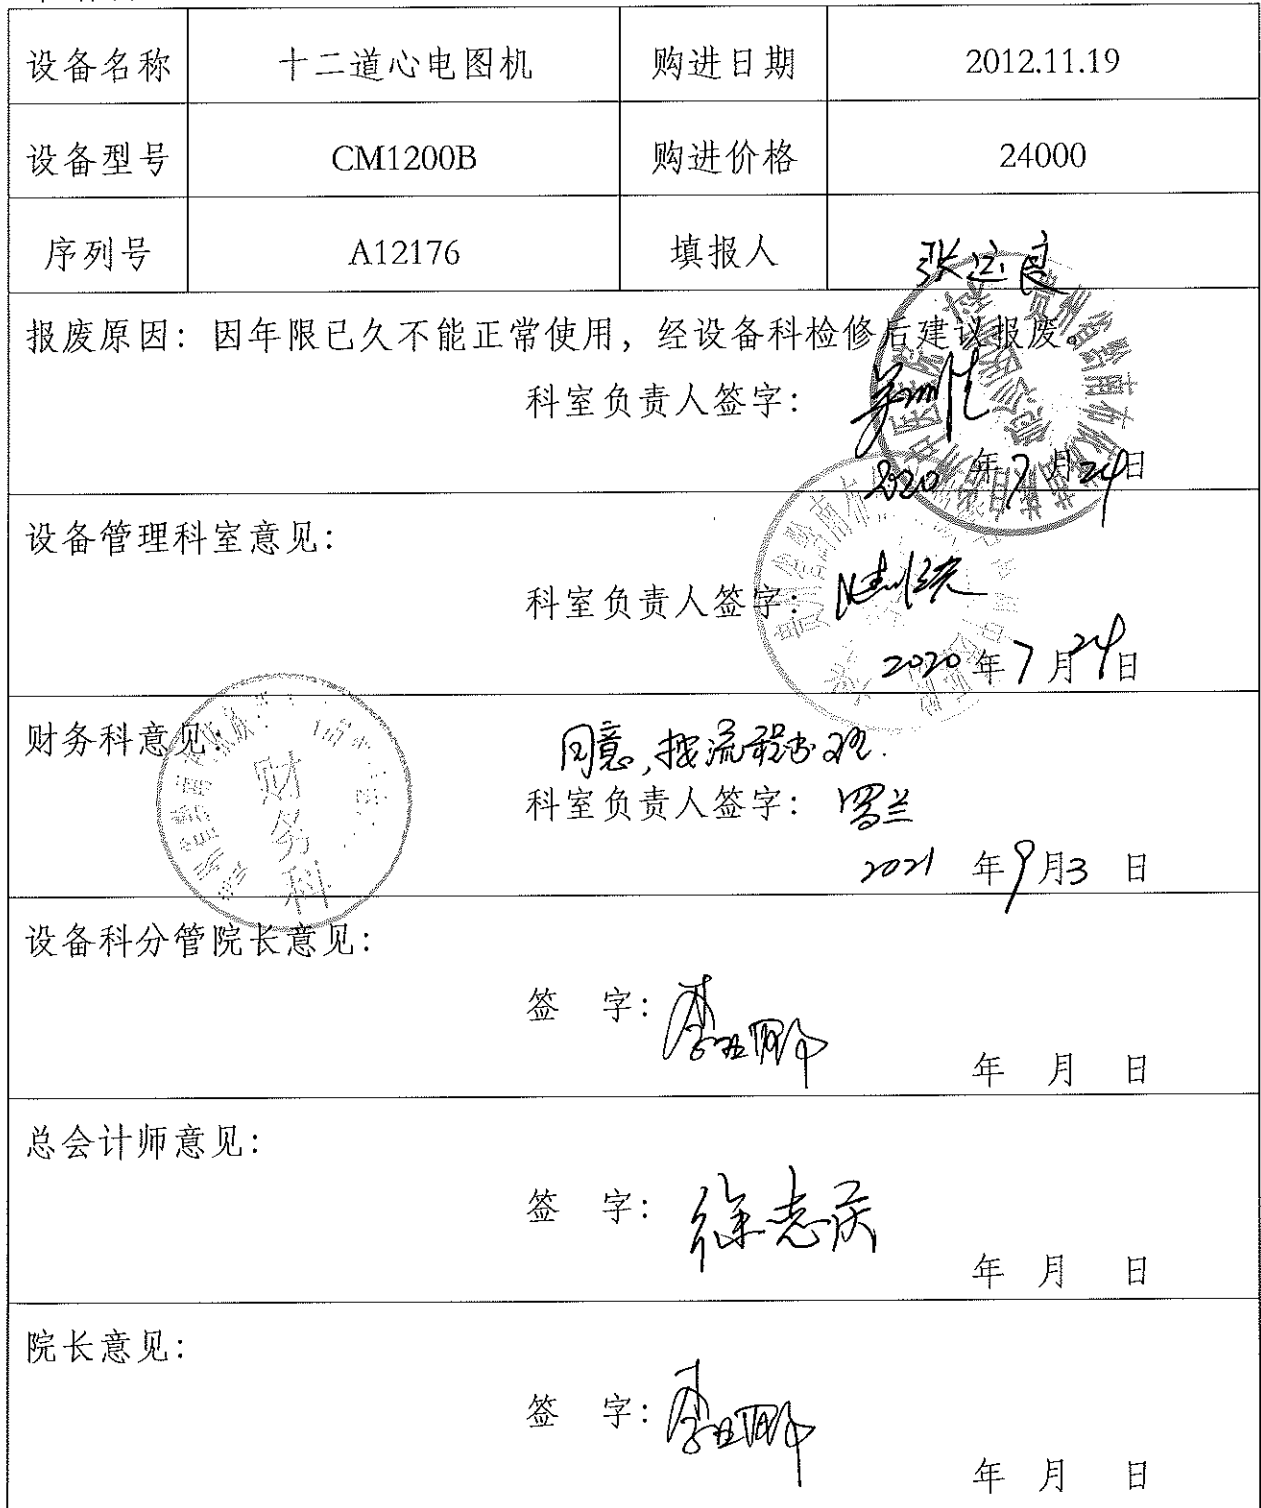 设备名称 十二道心电图机 购进日期 2012.11.19
设备型号 CM1200B 购进价格 24000
序列号 A12176 填报人
报废原因：因年限已久不能正常使用，经设备科检修后建议报废。
科室负责人签字：
2020年7月24日
设备管理科室意见：
科室负责人签字：
2020年7月24日
财务科意见：
财务科
同意，按流程办理.
科室负责人签字：罗兰
2021年9月3日
设备科分管院长意见：
签 字：
年 月 日
总会计师意见：
签 字：徐志庆
年 月 日
院长意见：
签 字：
年 月 日